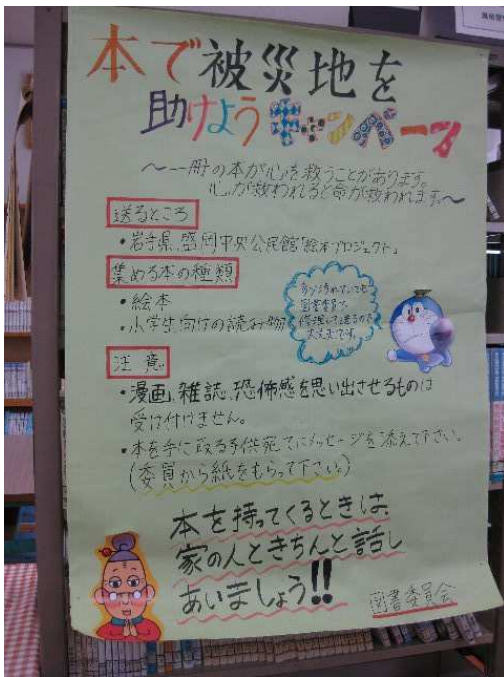 本で被災地を
助けようキャンペーン
～一冊の本が心を救うことがあります。
心が救われると命が救われます。～
送るところ
・岩手県 盛岡中央公民館「絵本プロジェクト」
集める本の種類
・絵本
・小学生向けの読み物
図書委員で
修理して送るので
大丈夫です。
注意
・漫画、雑誌、恐怖感を思い出させるものは
受け付けません。
・本を手に取る子供宛てにメッセージを添えて下さい。
(委員から紙をもらって下さい。)
本を持ってくるときは、
家の人ときちんと話し
あいましょう!!
図書委員会